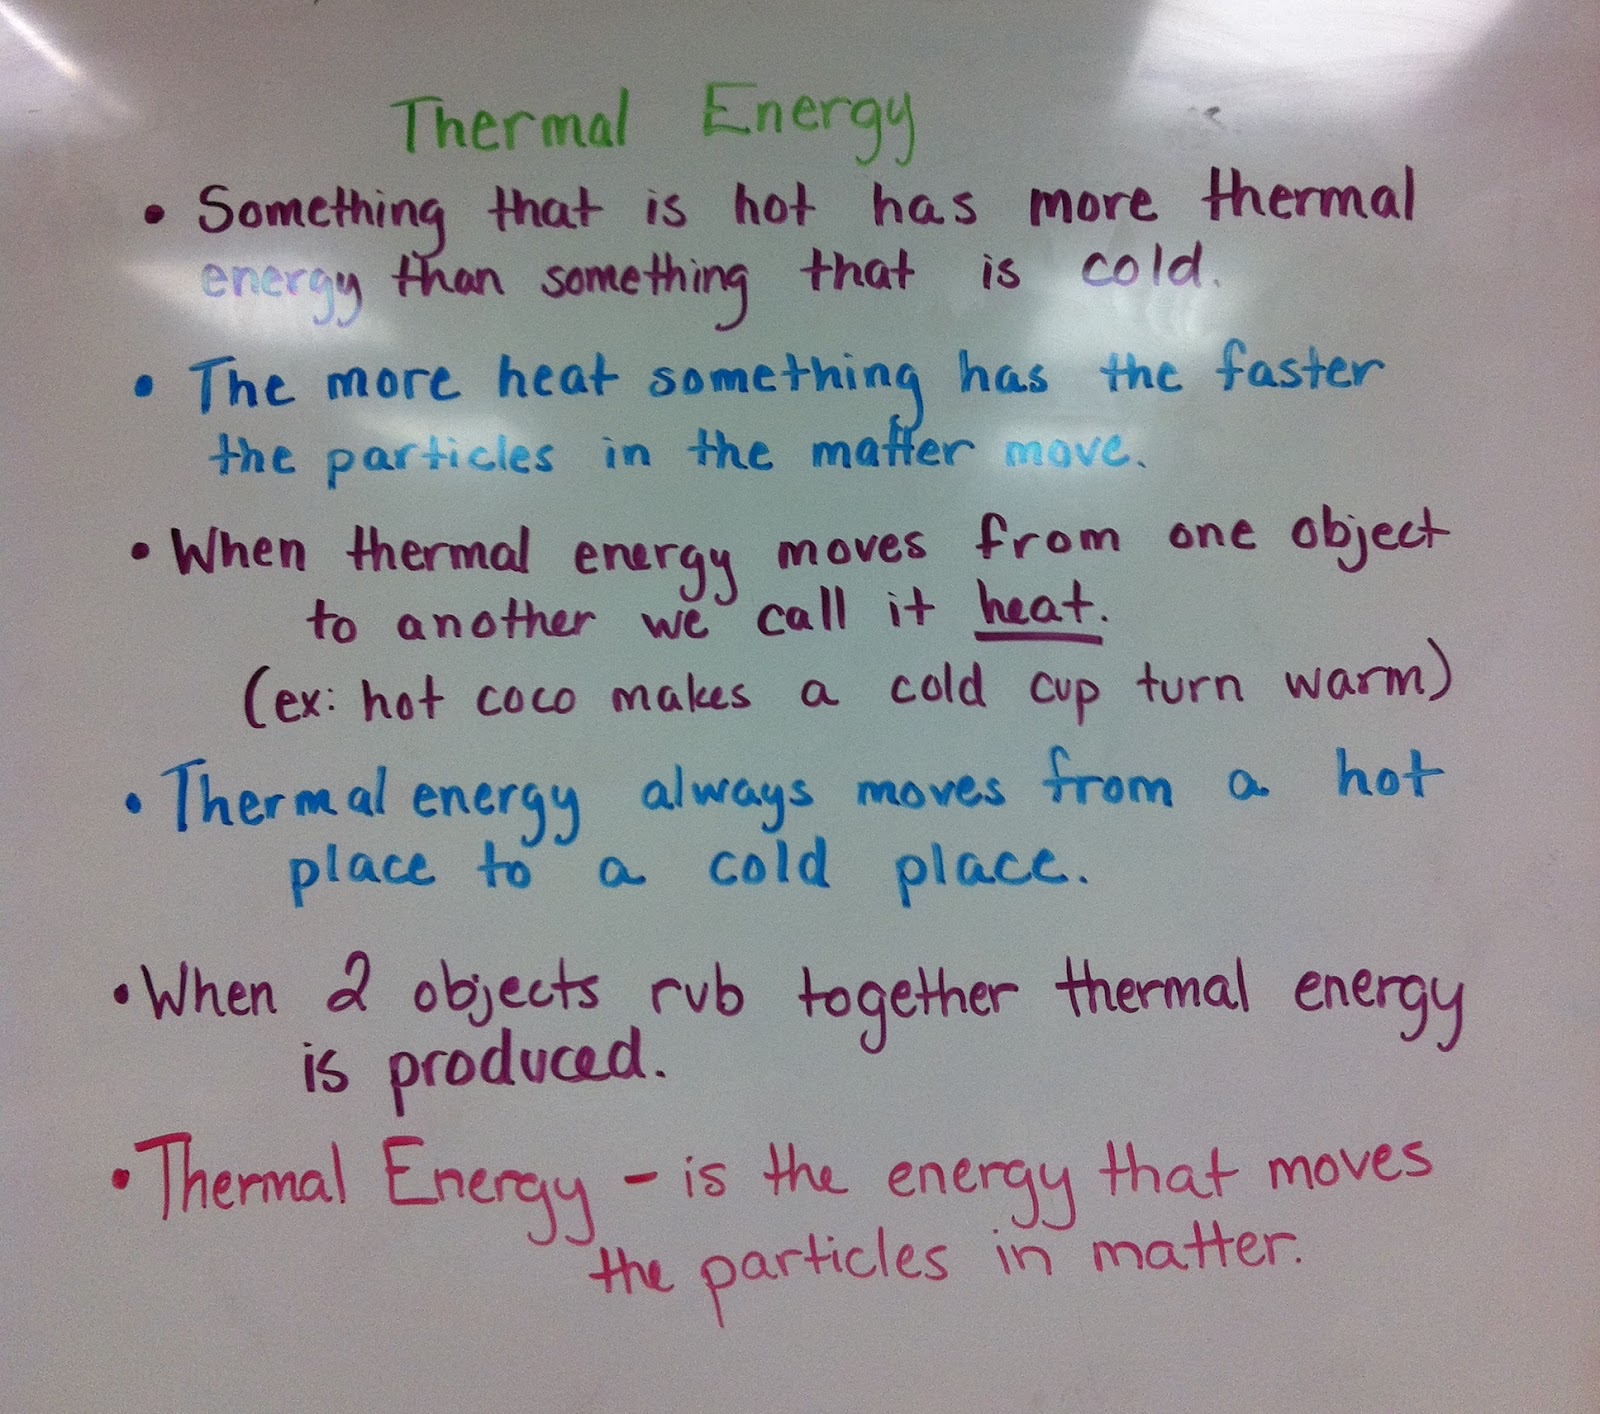 Thermal Energy
• Something that is hot has more thermal
energy than something that is cold.
• The more heat something has the faster
the particles in the matter move.
• When thermal energy moves from one object
to another we call it heat.
(ex: hot coco makes a cold cup turn warm)
• Thermal energy always moves from a hot
place to a cold place.
• When 2 objects rub together thermal energy
is produced.
• Thermal Energy - is the energy that moves
the particles in matter.